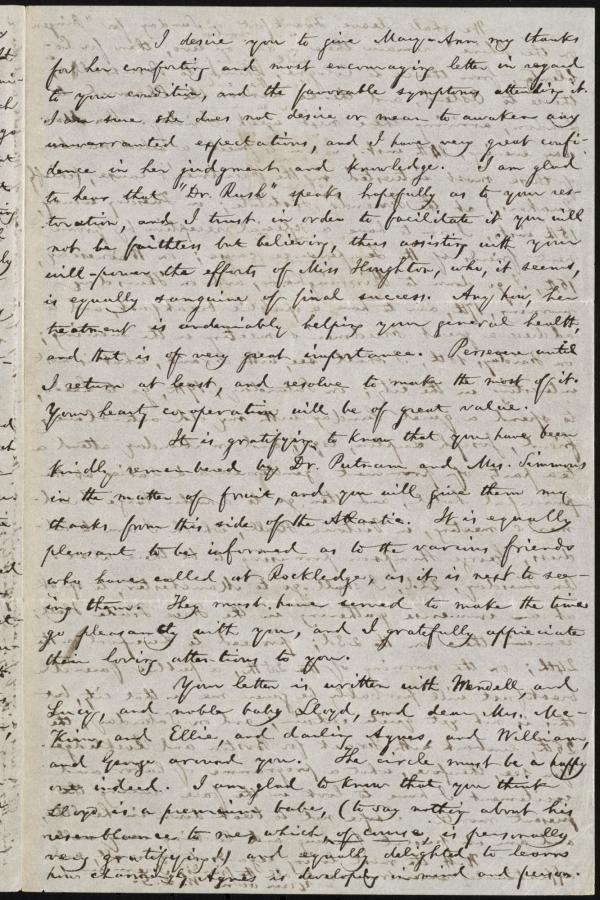 I desire you to give Mary-Ann my thanks
for her comforting and most encouraging letter in regard
to your condition, and the favorable symptoms attending it.
I am sure she does not desire or mean to awaken any
unwarranted expectations, and I have very great confi-
dence in her judgment and knowledge. I am glad
to hear that "Dr. Rush" speaks hopefully as to your res-
toration, and I trust in order to facilitate it you will
not be faithless but believing, thus assisting with your
will-power the efforts of Miss Houghton, who, it seems,
is equally sanguine of final success. Any how, her
treatment is undeniably helping your general health,
and that is of very great importance. Persevere until
I return at least, and resolve to make the most of it.
Your hearty co-operation will be of great value.
It is gratifying to know that you have been
kindly remembered by Dr. Putnam and Mrs. Simmons
in the matter of fruit, and you will give them my
thanks from this side of the Atlantic. It is equally
pleasant to be informed as to the various friends
who have called at Rockledge, as it is next to see-
ing them. They must have served to make the time
go pleasantly with you, and I gratefully appreciate
their loving attentions to you.
Your letter is written with Wendell, and
Lucy, and noble baby Lloyd, and dear Mrs. Mc-
Kim, and Ellie, and darling Agnes, and William,
and George around you. The circle must be a happy
one indeed. I am glad to know that you think
Lloyd is a premium babe, (to say nothing about his
resemblance to me, which, of course, is personally
very gratifying!) and equally delighted to learn
how charmingly Agnes is developing in mind and person.